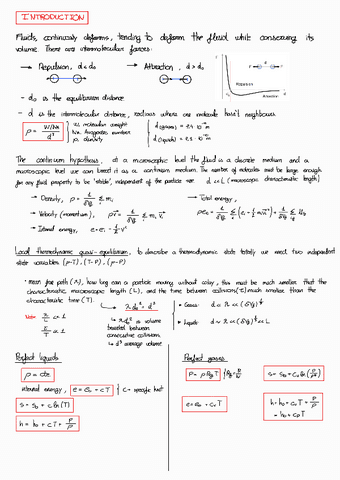 INTRODUCTION
Fluids, continuously deforms, tending to deform the fluid while conserving its
volume. There are intermolecular forces:
→ Repulsion, d < d₀
→ Attraction, d > d₀
Repulsion
Attraction
- d₀ is the equilibrium distance
- d is the intermolecular distance, where one molecule hasn't neighbours
ρ = W/NA / d³
W, molecular weight
NA, Avogadro's number
ρ, density
d (gases) =
d (liquids) =
The continuum hypothesis, at a microscopic level the fluid is a discrete medium and a
macroscopic level we can treat it as a continuum medium. The number of molecules must be large enough
for any fluid property to be 'stable', independent of the particle size. d << L (macroscopic characteristic length)
→ Density, ρ = 1/δV Σ mᵢ
→ Total energy,
→ Velocity (momentum), ρv̄ = 1/δV Σ mᵢ v̄ᵢ
→ Internal energy, e = eₜ - ½ v²
Local thermodynamic quasi-equilibrium, to describe a thermodynamic state totally we need two independent
state variables (p-T), (T-ρ), (p-ρ)
- mean free path (λ), how long can a particle moving without colliding, this must be much smaller that the
characteristic macroscopic length (L), and the time between collisions (τ) much smaller than the
characteristic time (T).
Note:
λ/L << 1
τ/T << 1
→ λ d₀² ~ d³
↳ λ d₀² is volume
traveled between
consecutive collisions
↳ d³ average volume
• Gases:
• Liquids:
Perfect liquids
ρ = cte
internal energy, e = e₀ + cT { c → specific heat
s = s₀ + c ln(T)
h = h₀ + cT + p/ρ
Perfect gases
p = ρ Rg T
e = e₀ + cᵥT
h = h₀ + cᵥT + p/ρ
= h₀ + cpT